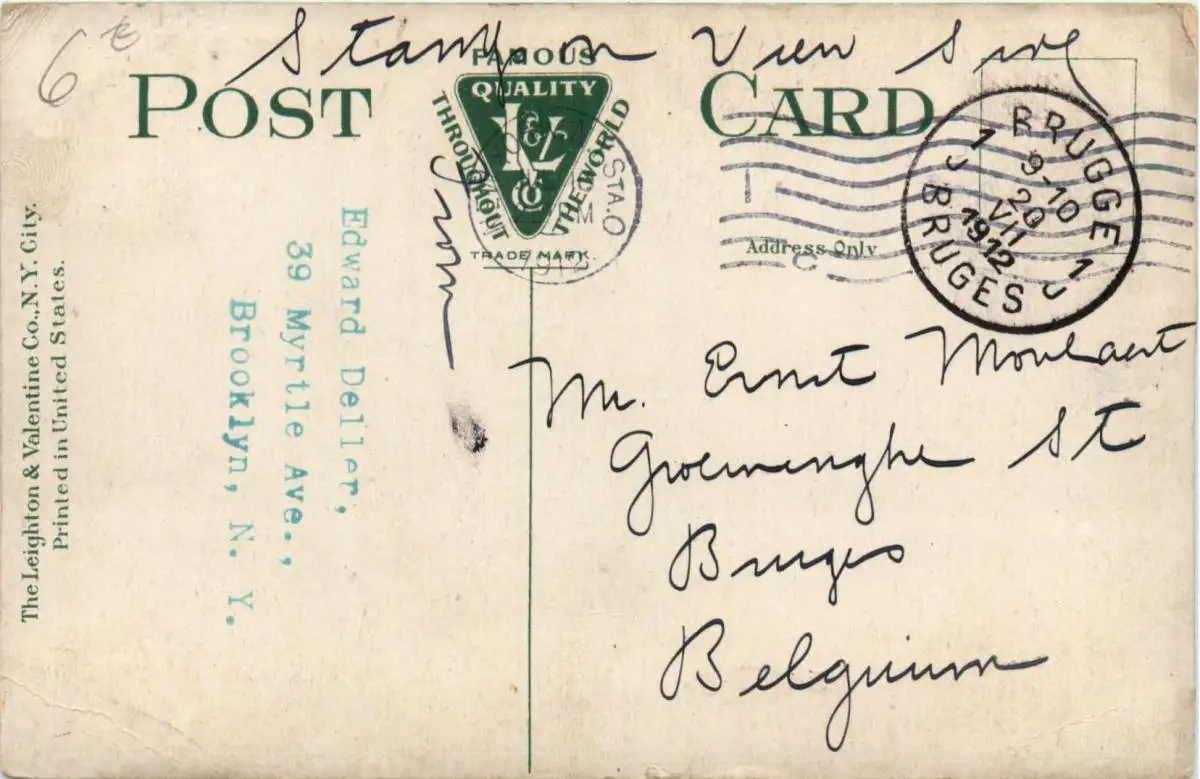 6€
Stamp on View Side
POST CARD
FAMOUS
QUALITY
THROUGHOUT
THE WORLD
L&V
Co
TRADE MARK.
STA.O
M
1912
BRUGGE
1 1
9-10
20
VII
1912
BRUGES
Address Only
Edward Deller,
39 Myrtle Ave.,
Brooklyn, N. Y.
Mr. Ernst Moulaert
Groeninghe St
Bruges
Belguium
The Leighton & Valentine Co., N.Y. City.
Printed in United States.